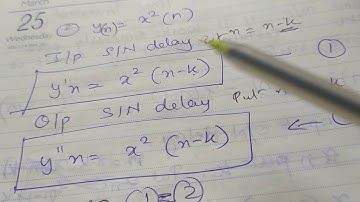 March
25
Wednesday
② y(n) = x²(n)
I/p S/N delay put n = n-k
y'n = x² (n-k) ①
O/p S/N delay put n
y''n = x² (n-k) ←
① = ②